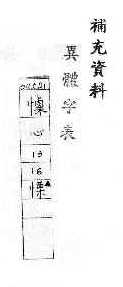 補充資料
異體字表
懍
心
13
16